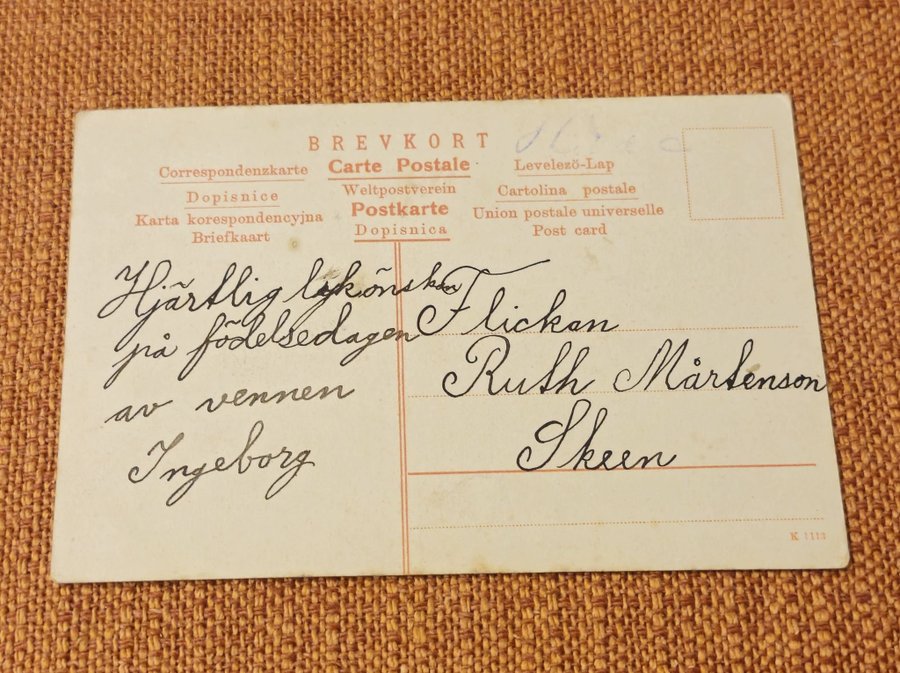 BREVKORT
Correspondenzkarte
Carte Postale
Levelező-Lap
Dopisnice
Weltpostverein
Cartolina postale
Karta korespondencyjna
Postkarte
Union postale universelle
Briefkaart
Dopisnica
Post card
Hjärtlig lykönskan
på födelsedagen
av vennen
Ingeborg
Flickan
Ruth Mårtenson
Skeen
K 1113